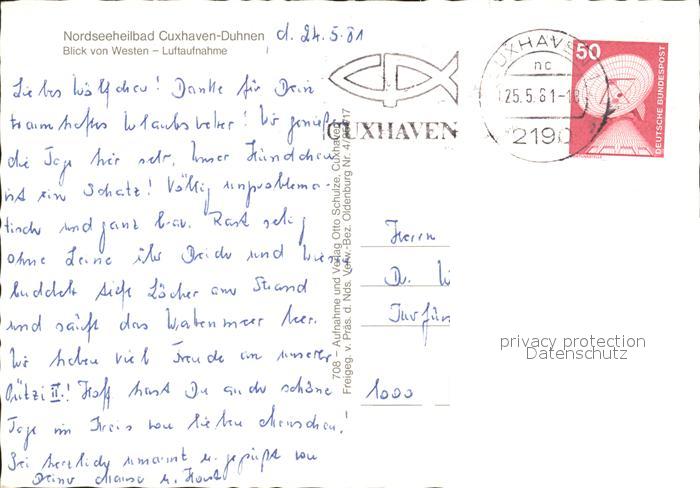 Nordseeheilbad Cuxhaven-Duhnen
Blick von Westen – Luftaufnahme
d. 24.5.81
Liebes Wölfchen! Danke für Dein
traumhaftes Urlaubswetter! Wir genießen
die Tage hier sehr, unser Hündchen
ist ein Schatz! Völlig unproblema-
tisch und ganz brav. Rast selig
ohne Leine über Deich und Wiese
buddelt tiefe Löcher am Strand
und säuft das Wattenmeer leer.
Wir haben viel Freude an unserer
II.! Hoff hast Du auch schöne
Tage im Kreis von lieben Menschen.
Sei herzlich umarmt u. gegrüßt von
Deiner u. Horst
708 – Aufnahme und Verlag Otto Schulze, Cuxhaven
Freigeg. v. Präs. d. Nds. Verw.-Bez. Oldenburg Nr. 4/
CUXHAVEN
CUXHAVEN
nc
25.5.81-18
2190
50
DEUTSCHE BUNDESPOST
Herrn
Dr.
1000
privacy protection
Datenschutz